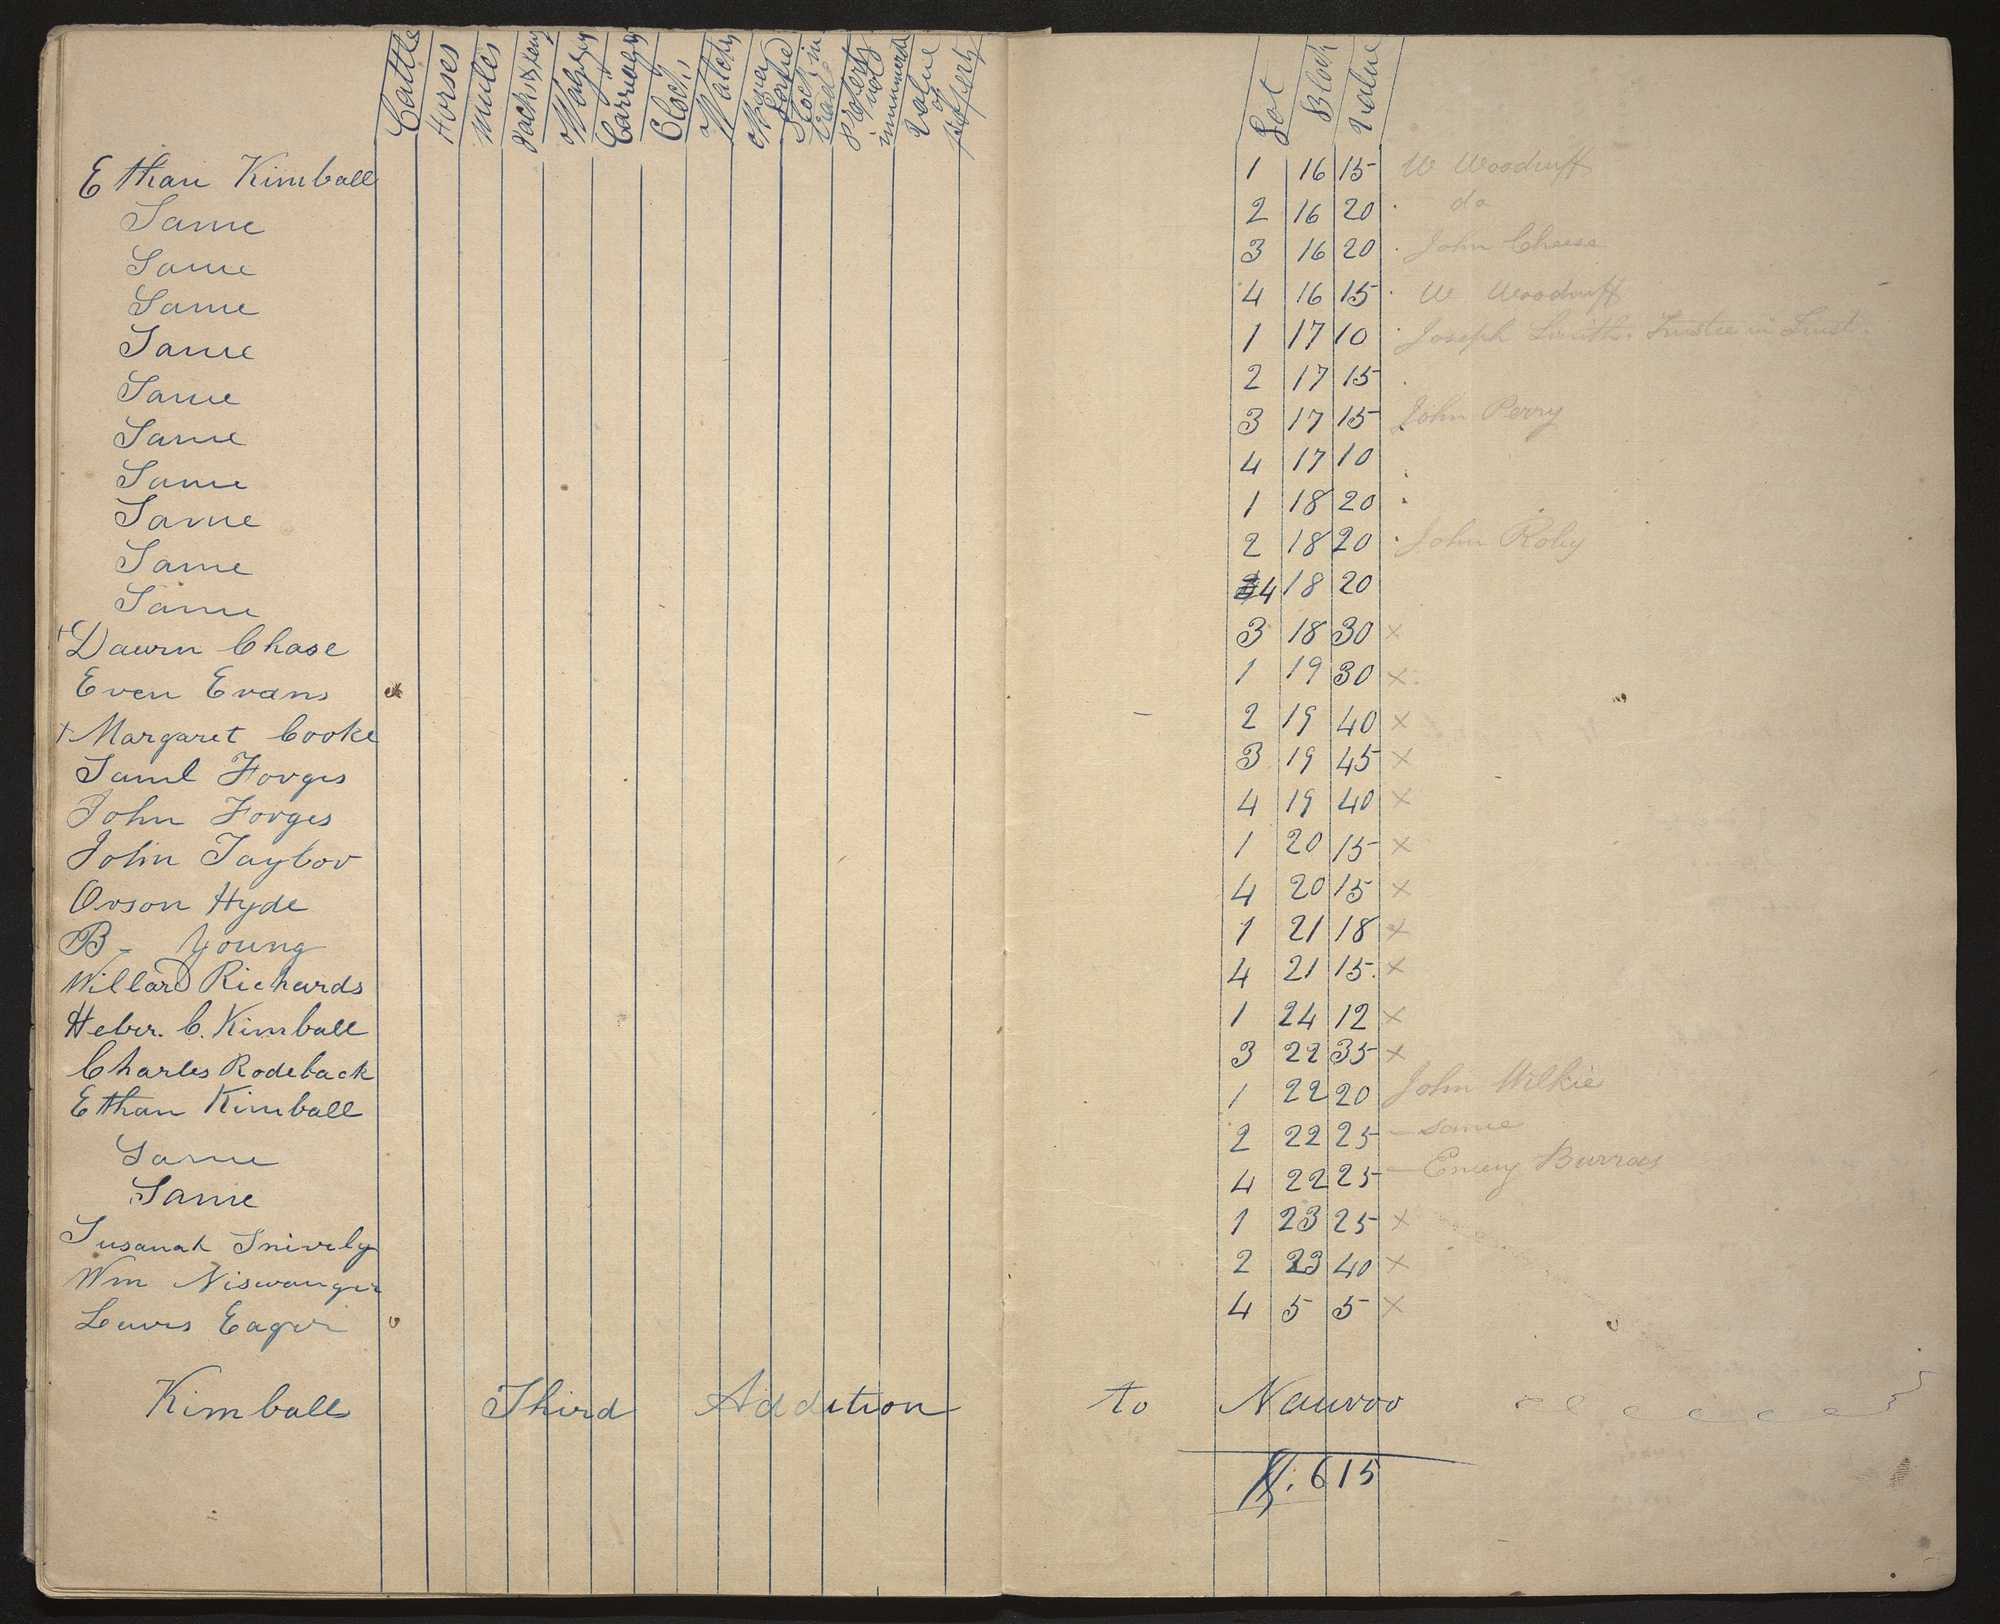 Cattle Horses Mules Jacks & Jens Wagons Carriages Clocks Watches Money Loaned Stock in trade Property not innumerated Value of property Lot Block Value
Ethan Kimball 1 16 15 W Woodruff
Same 2 16 20 . do
Same 3 16 20 . John Cheese
Same 4 16 15 . W Woodruff
Same 1 17 10 . Joseph Smith. Trustee in Trust.
Same 2 17 15 .
Same 3 17 15 John Perry
Same 4 17 10 .
Same 1 18 20 .
Same 2 18 20 . John Roby
Same 4 18 20
+ Dawrn Chase 3 18 30 ×
Even Evans 1 19 30 ×
+ Margaret Cooke 2 19 40 ×
Saml Forges 3 19 45 ×
John Forges 4 19 40 ×
John Taylor 1 20 15 ×
Orson Hyde 4 20 15 ×
B - Young 1 21 18 ×
Willard Richards 4 21 15. ×
Heber. C. Kimball 1 24 12 ×
Charles Rodeback 3 22 35 ×
Ethan Kimball 1 22 20 John Wilkie
Same 2 22 25 — same
Same 4 22 25 — Emery Barras
Susanah Snively 1 23 25 ×
Wm Niswanger 2 23 40 ×
Lewis Eager 4 5 5 ×
Kimballs Third Addition to Nauvoo
$. 615